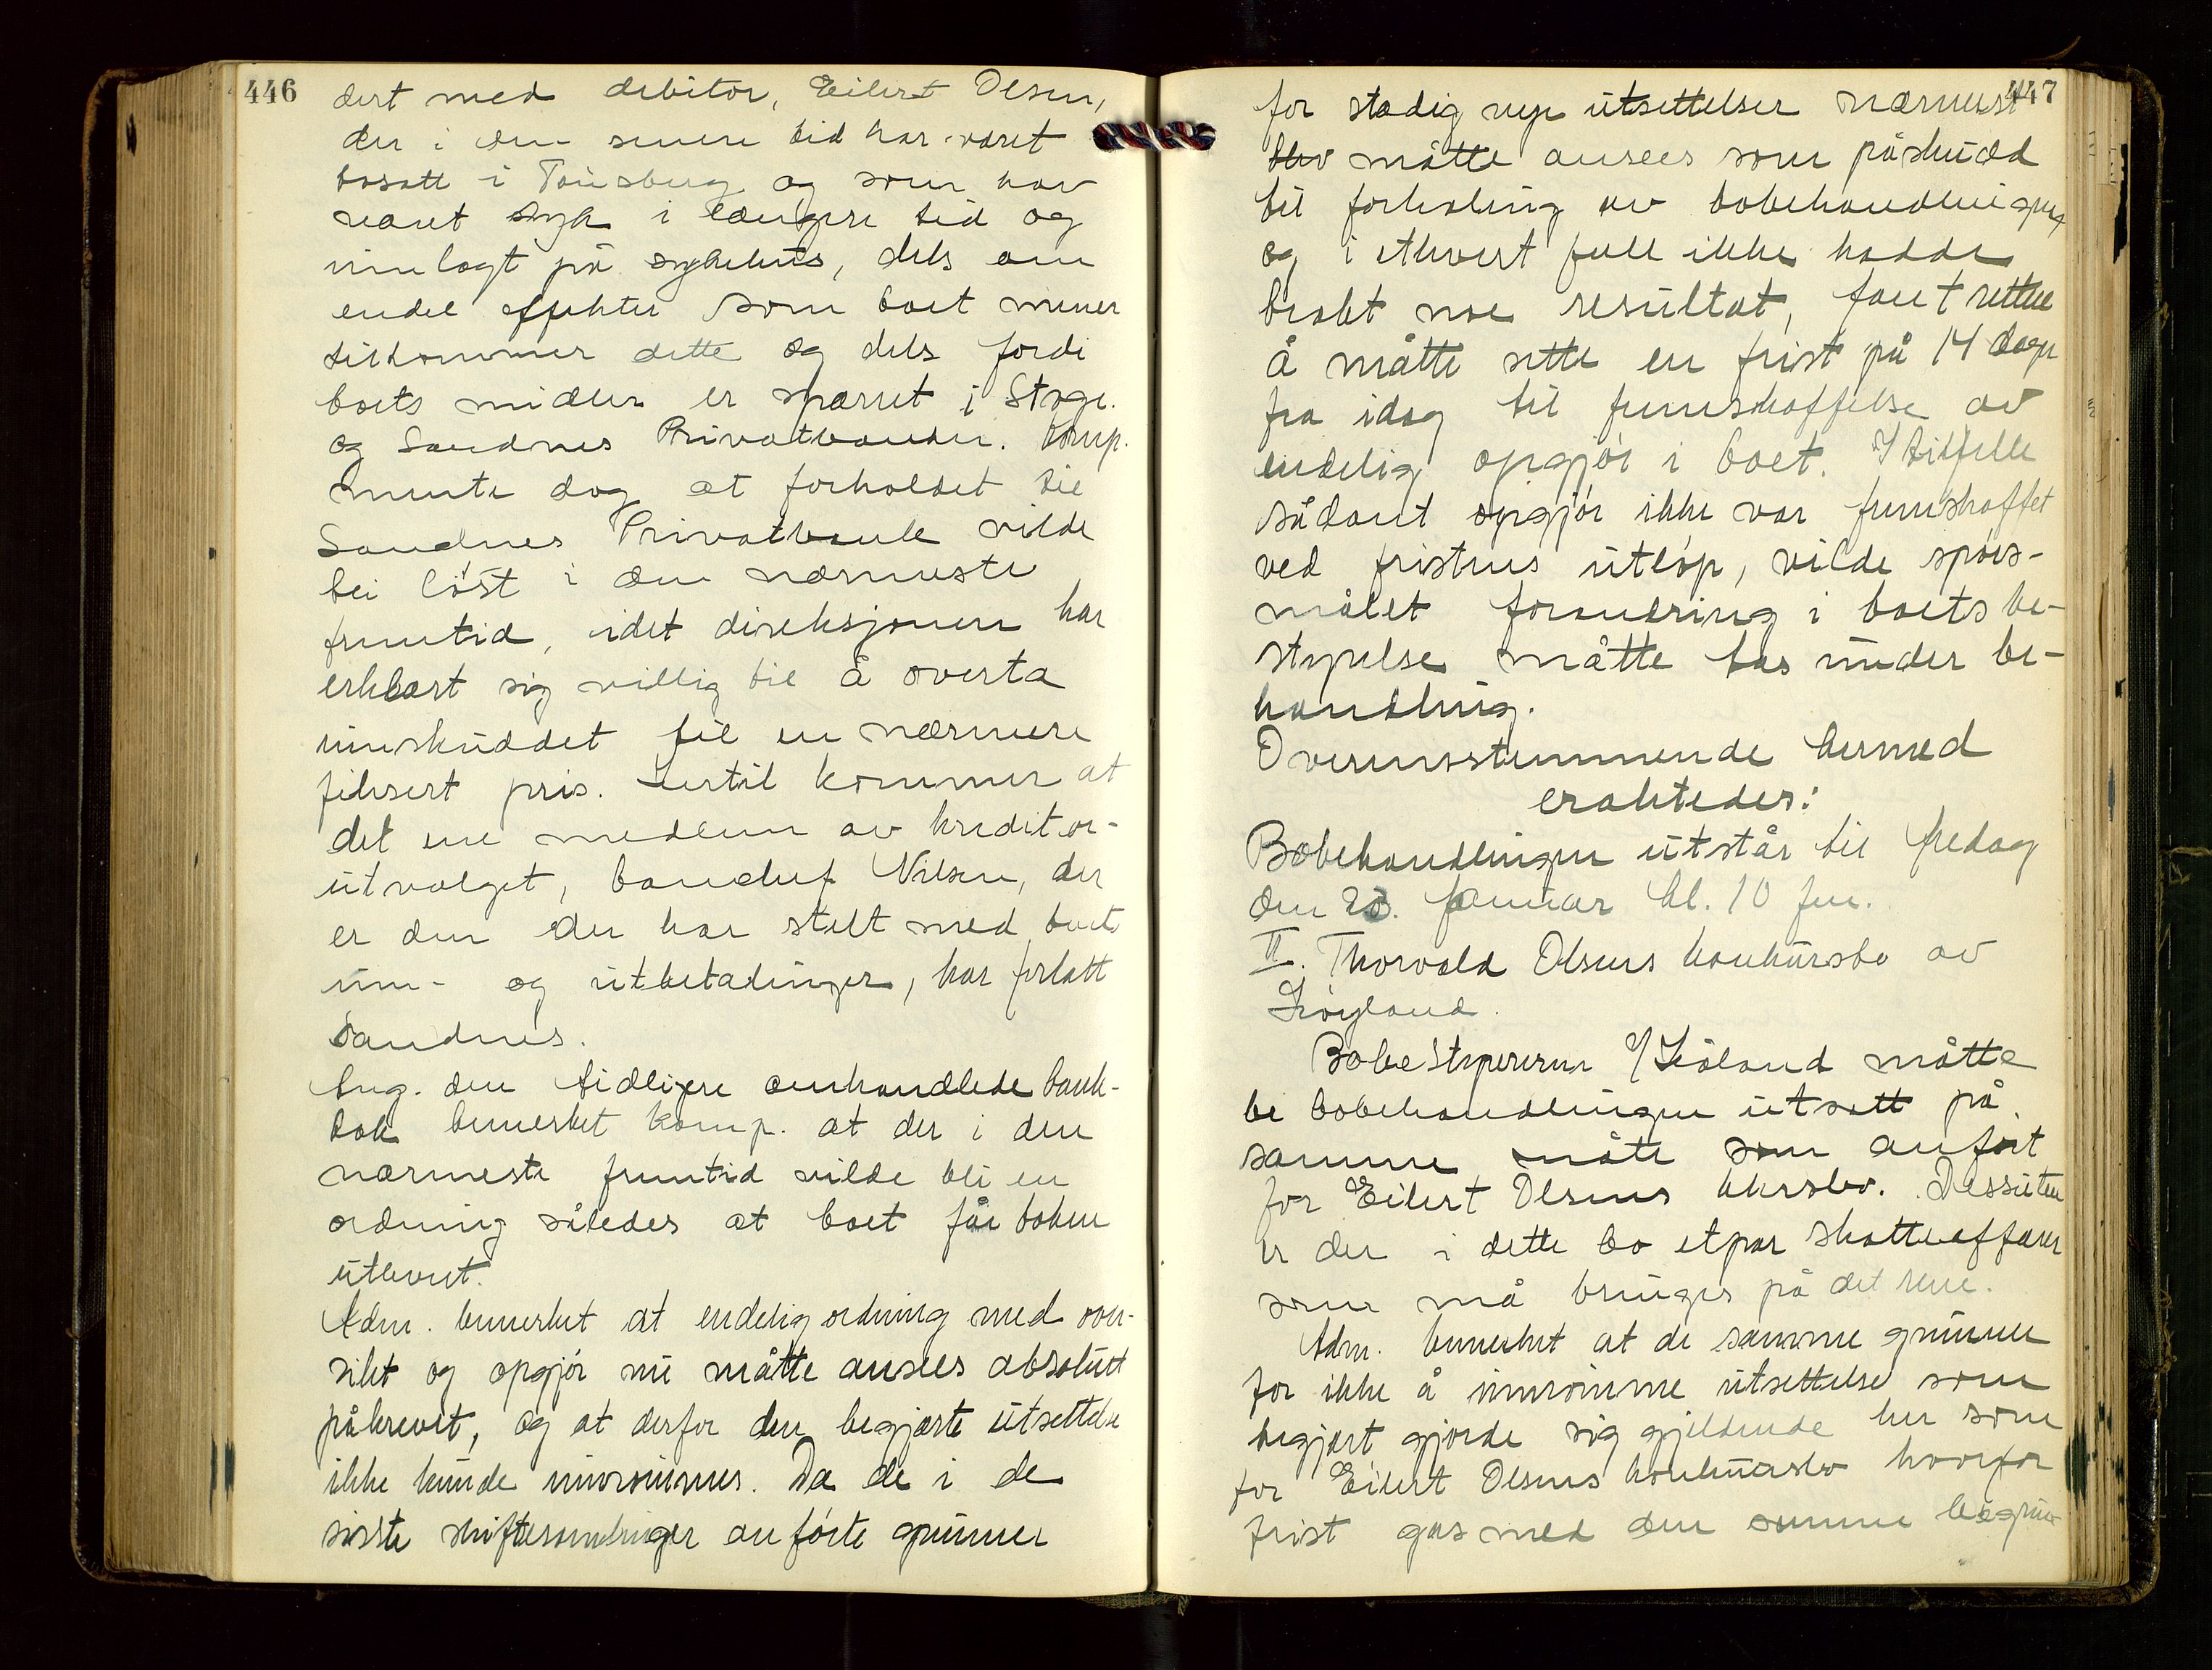 446
dert med debitor, Eilert Olsen,
der i den senere tid har været
bosatt i Tønsberg og som har
været syk i længere tid og
innlagt på sykehus, dels om
endel effekter som boet mener
tilkommer dette og dels fordi
boets midler er sparret i Stage.
og Sandnes Privatbanker. Komp.
mente dog at forholdet til
Sandnes Privatbank vilde
bli løst i den nærmeste
fremtid, idet direksjonen har
erklært sig villig til å overta
innskuddet til en nærmere
fiksert pris. Hertil kommer at
det ene medlem av kreditor-
utvalget, banchef Nilsen, der
er den der har stelt med boets
inn- og utbetalinger, har forlatt
Sandnes.
Ang. den tidligere omhandlede bank-
bok bemerket komp. at der i den
nærmeste fremtid vilde bli en
ordning således at boet får boken
utlevert.
Adm. bemerket at endelig ordning med over-
sikt og opgjør nu måtte ansees absolutt
påkrevet, og at derfor den begjærte utsettelse
ikke kunde innrømmes. Da de i de
siste skiftesamlinger anførte grunner
447
for stadig nye utsettelser nærmest
blev måtte ansees som påskudd
til forhaling av bobehandlingen
og i ethvert fall ikke hadde
brakt noe resultat, fant retten
å måtte sette en frist på 14 dager
fra idag til fremskaffelse av
endelig opgjør i boet. I tilfelle
sådant opgjør ikke var fremskaffet
ved fristens utløp, vilde spørs-
målet forandring i boets be-
styrelse måtte tas under be-
handling.
Overensstemmende hermed
eraktedes:
Bobehandlingen utstår til fredag
den 20. januar kl. 10 fm.
II. Thorvald Olsens konkursbo av
Høyland.
Bobestyreren o/ Skåland måtte
be bobehandlingen utsatt på
samme måte som anført
for Eilert Olsens kkrsbo. Dessuten
er der i dette bo etpar skatteaffærer
som må bringes på det rene.
Adm. bemerket at de samme grunner
for ikke å innrømme utsettelse som
begjært gjorde sig gjeldende her som
for Eilert Olsens konkursbo hvorfor
frist gas med den samme begrun-